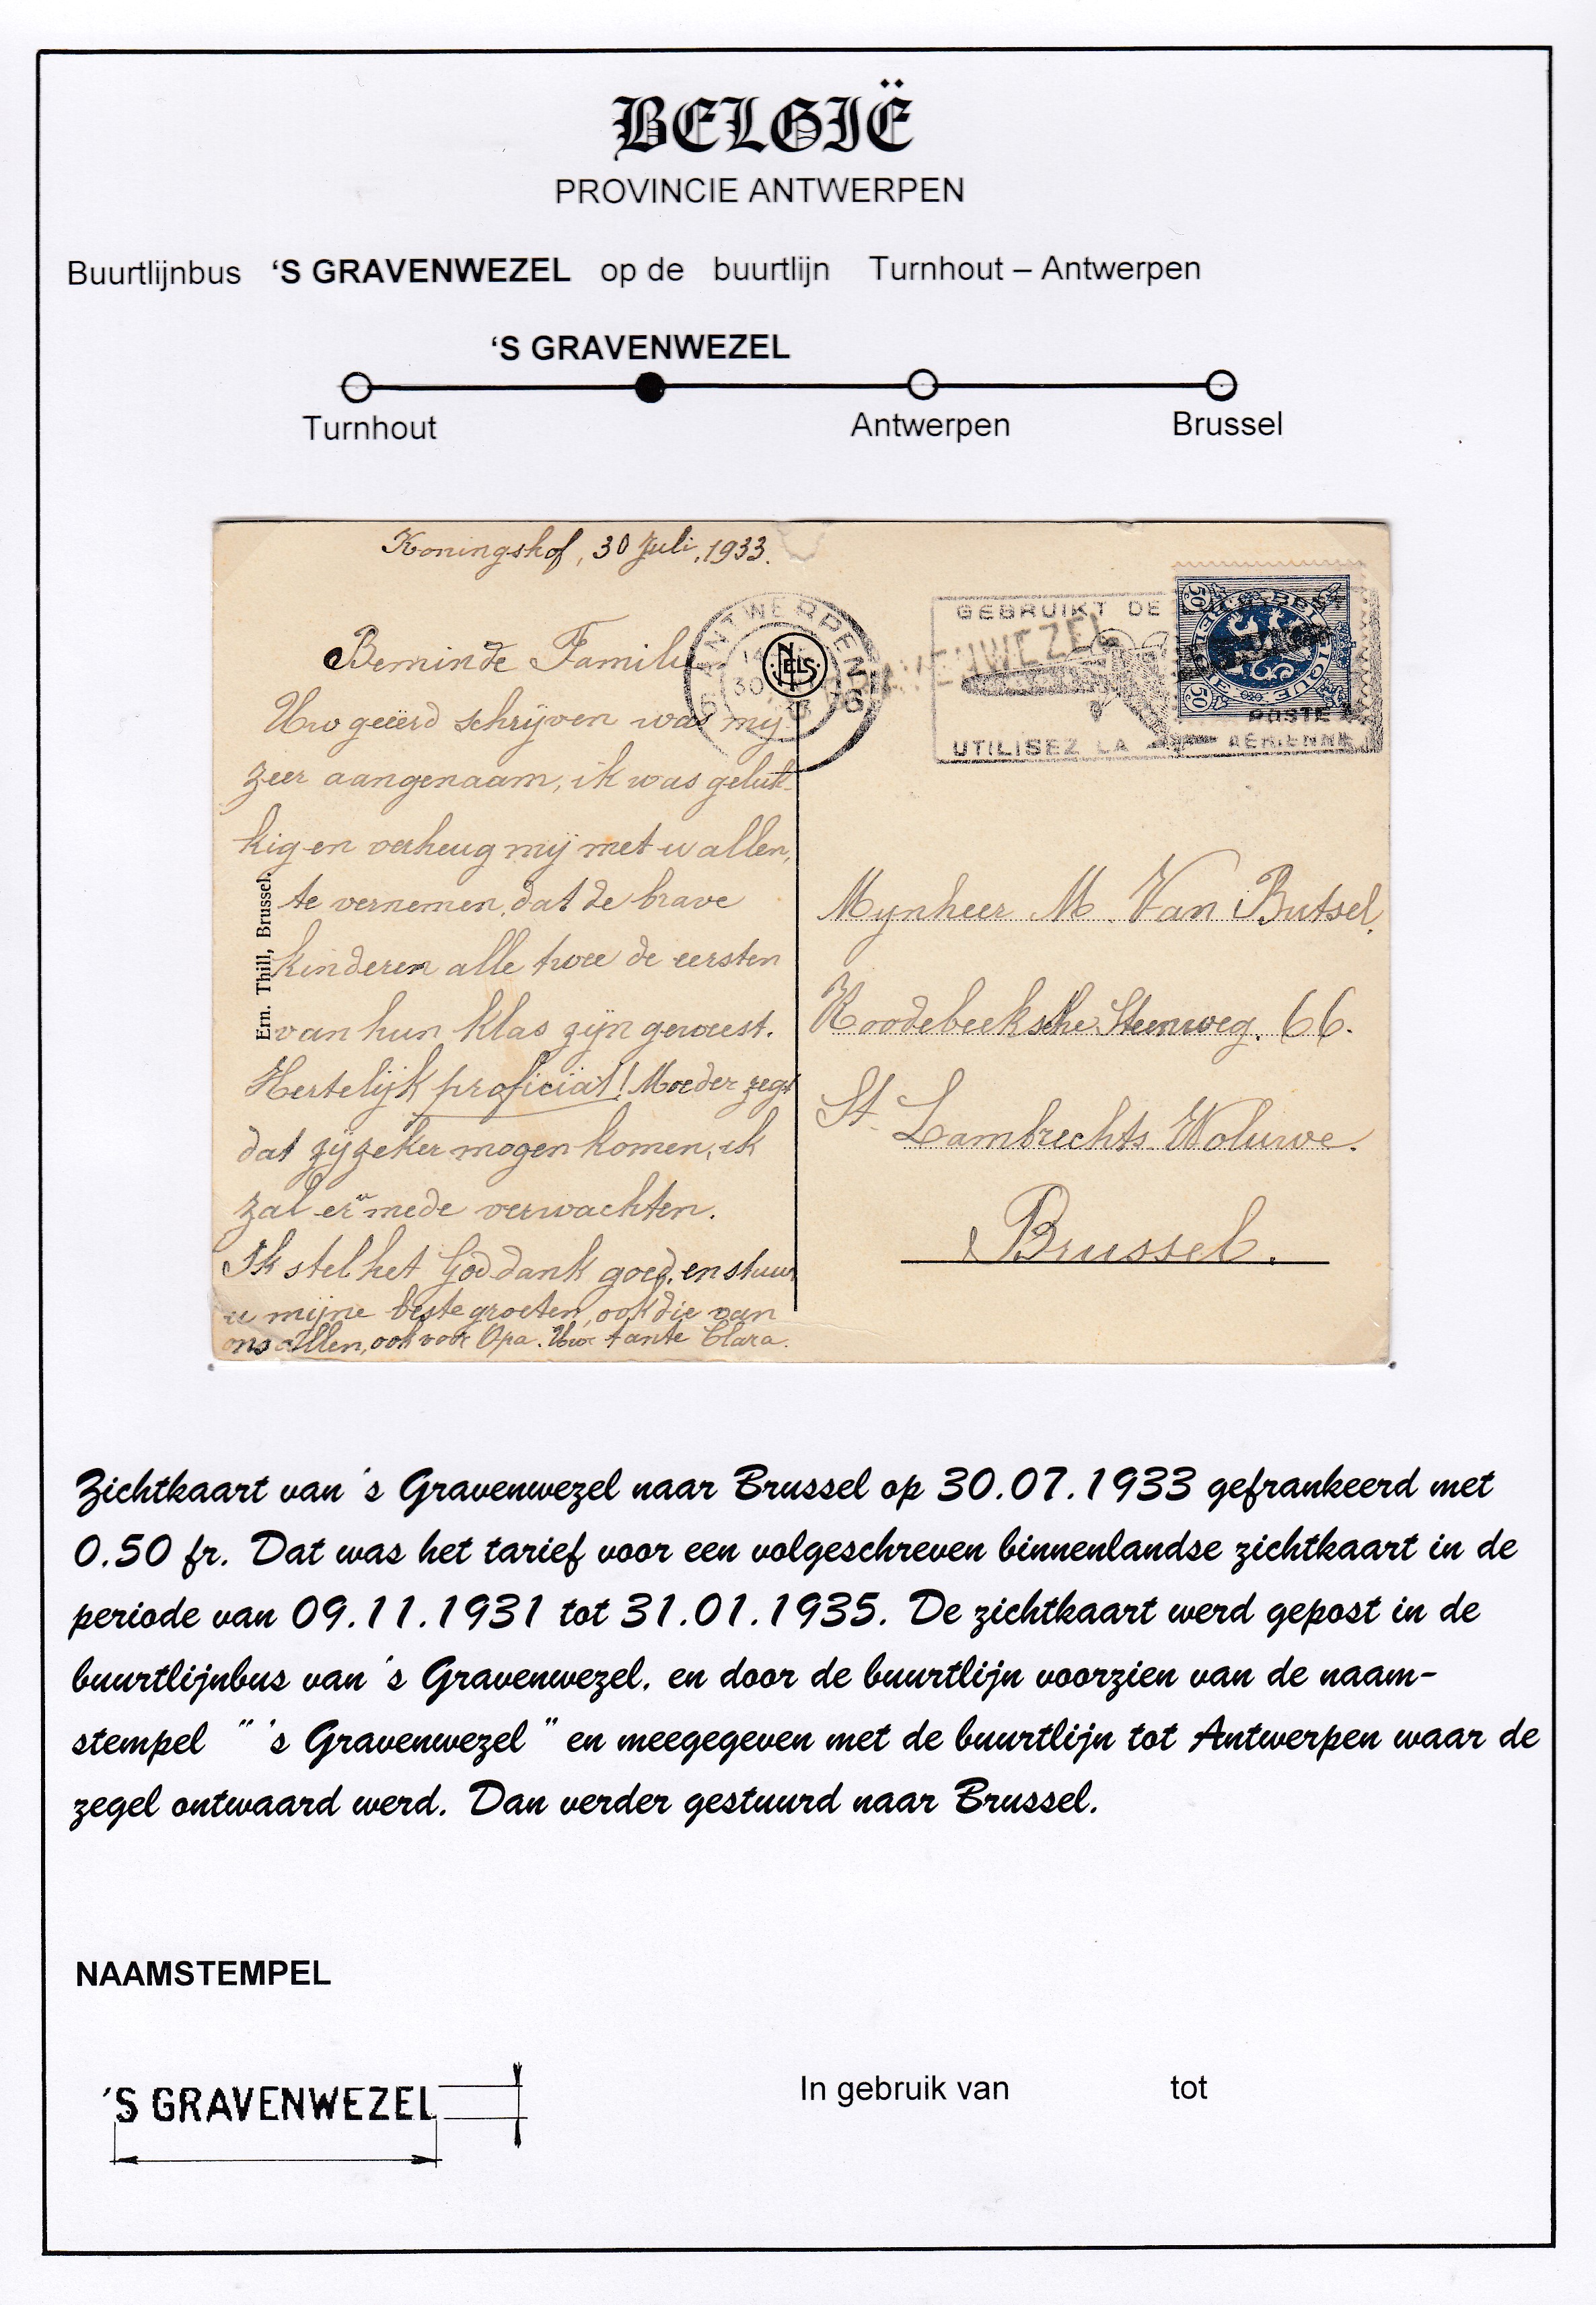 BELGIË
PROVINCIE ANTWERPEN
Buurtlijnbus ‘S GRAVENWEZEL op de buurtlijn Turnhout – Antwerpen
‘S GRAVENWEZEL
Turnhout Antwerpen Brussel
Koningshof, 30 Juli, 1933.
Beminde Famili
Uw geëerd schrijven was mij
zeer aangenaam, ik was geluk-
kig en verheug mij met u allen,
te vernemen dat de brave
kinderen alle twee de eersten
van hun klas zijn geweest.
Hertelijk proficiat! Moeder zegt
dat zij zeker mogen komen, ik
zal er u mede verwachten.
Ik stel het God dank goed, en stuur
u mijne beste groeten, ook die van
ons allen, ook voor Opa. Uw tante Clara.
Ern. Thill, Brussel.
ANTWERPEN 6
30
NELS
GEBRUIKT DE
AVENWEZEL
UTILISEZ LA POSTE AERIENNE
50 50
BELGIQUE
Mynheer M. Van Butsel,
Roodebeeksche Steenweg. 66.
St. Lambrechts Woluwe.
Brussel.
Zichtkaart van 's Gravenwezel naar Brussel op 30.07.1933 gefrankeerd met
0.50 fr. Dat was het tarief voor een volgeschreven binnenlandse zichtkaart in de
periode van 09.11.1931 tot 31.01.1935. De zichtkaart werd gepost in de
buurtlijnbus van 's Gravenwezel. en door de buurtlijn voorzien van de naam-
stempel " 's Gravenwezel " en meegegeven met de buurtlijn tot Antwerpen waar de
zegel ontwaard werd. Dan verder gestuurd naar Brussel.
NAAMSTEMPEL
'S GRAVENWEZEL
In gebruik van tot